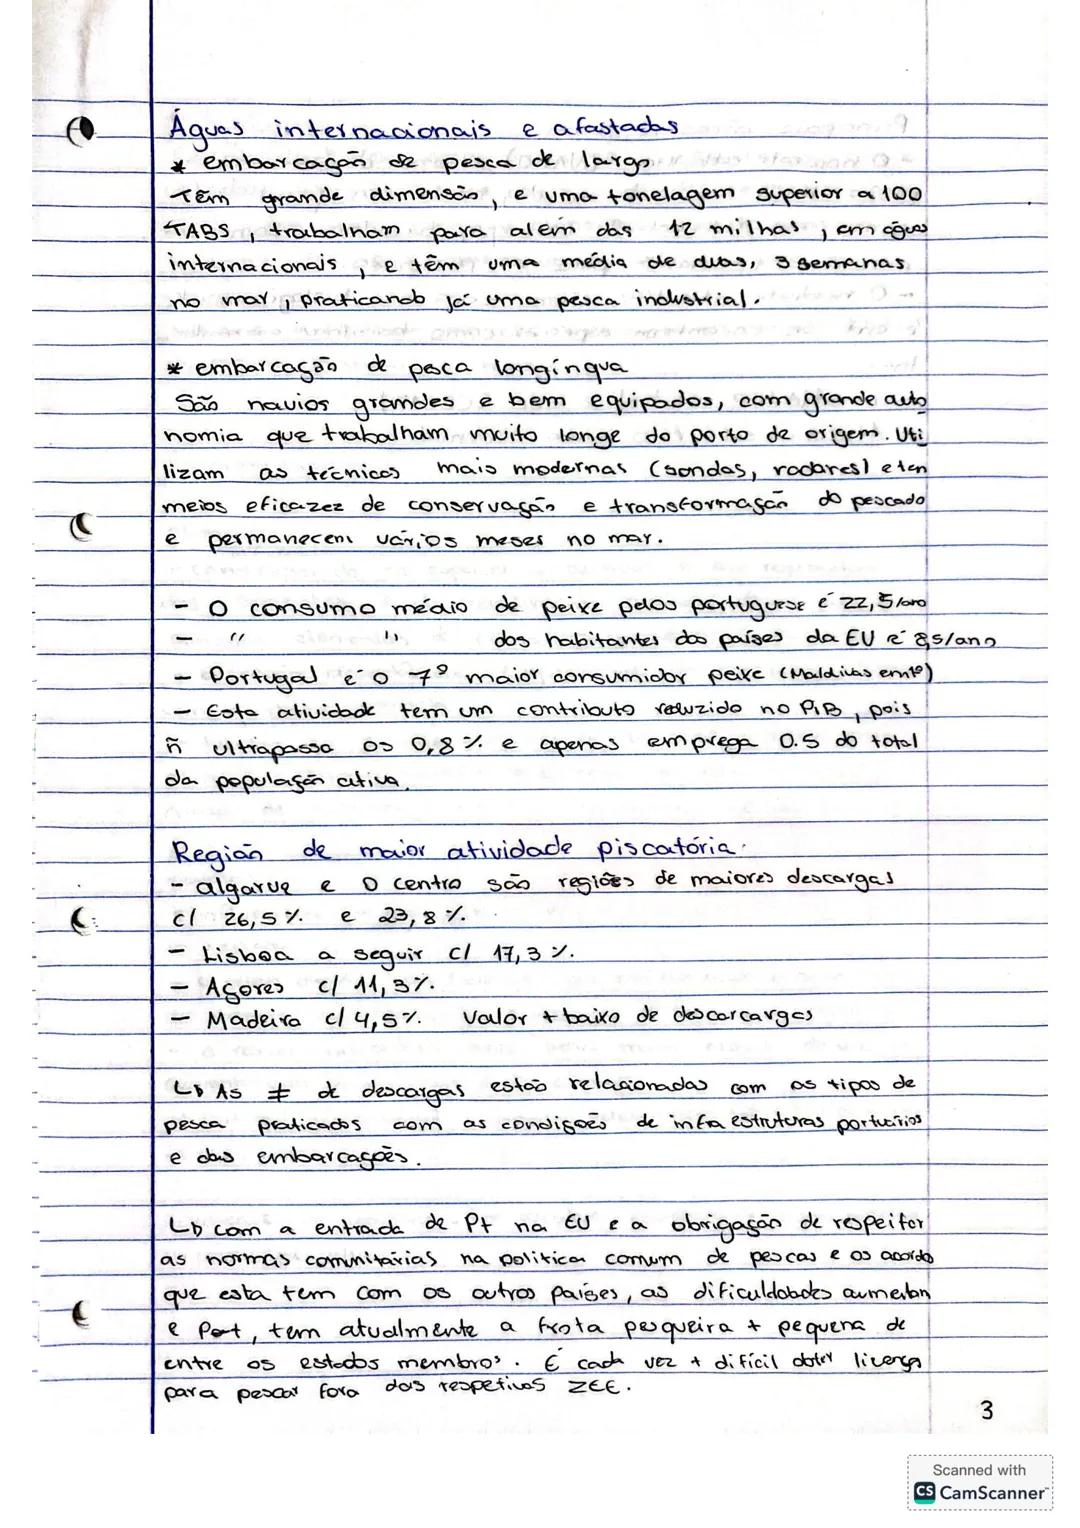 Águas internacionais e afastadas
* embarcação de pesca de largo
Têm grande dimensão, e uma tonelagem superior a 100
TABS, trabalham para além das 12 milhas, em águas
internacionais, e têm uma média de duas, 3 semanas
no mar, praticando já uma pesca industrial.
* embarcação de pesca longínqua
São navios grandes e bem equipados, com grande auto
nomia que trabalham muito longe do porto de origem. Uti
lizam as técnicas mais modernas (sondas, radares) e tem
meios eficazez de conservação e transformação do pescado
e permanecem vários meses no mar.
- O consumo médio de peixe pelos portuguese é 22,5/ano
- " " dos habitantes dos países da EU é 8,5/ano
- Portugal é o 7º maior consumidor peixe (Maldivas em 1º)
- Esta atividade tem um contributo reduzido no PIB, pois
ñ ultrapassa os 0,8% e apenas emprega 0.5 do total
da população ativa.
Região de maior atividade piscatória.
- algarve e o centro são regiões de maiores descargas
c/ 26,5% e 23,8%.
- Lisboa a seguir c/ 17,3%.
- Açores c/ 11,3%.
- Madeira c/ 4,5% valor + baixo de descarcargas
↳ As ≠ de descargas estão relacionadas com os tipos de
pesca praticados com as condições de infra estruturas portuários
e das embarcações.
↳ com a entrada de Pt na EU e a obrigação de respeitar
as normas comunitárias na politica comum de pescas e os acordo
que esta tem com os outros países, as dificuldades aumentam
e Port, tem atualmente a frota pesqueira + pequena de
entre os estados membros. É cada vez + difícil obter licença
para pescar fora das respetivas ZEE.
3
Scanned with
CS CamScanner